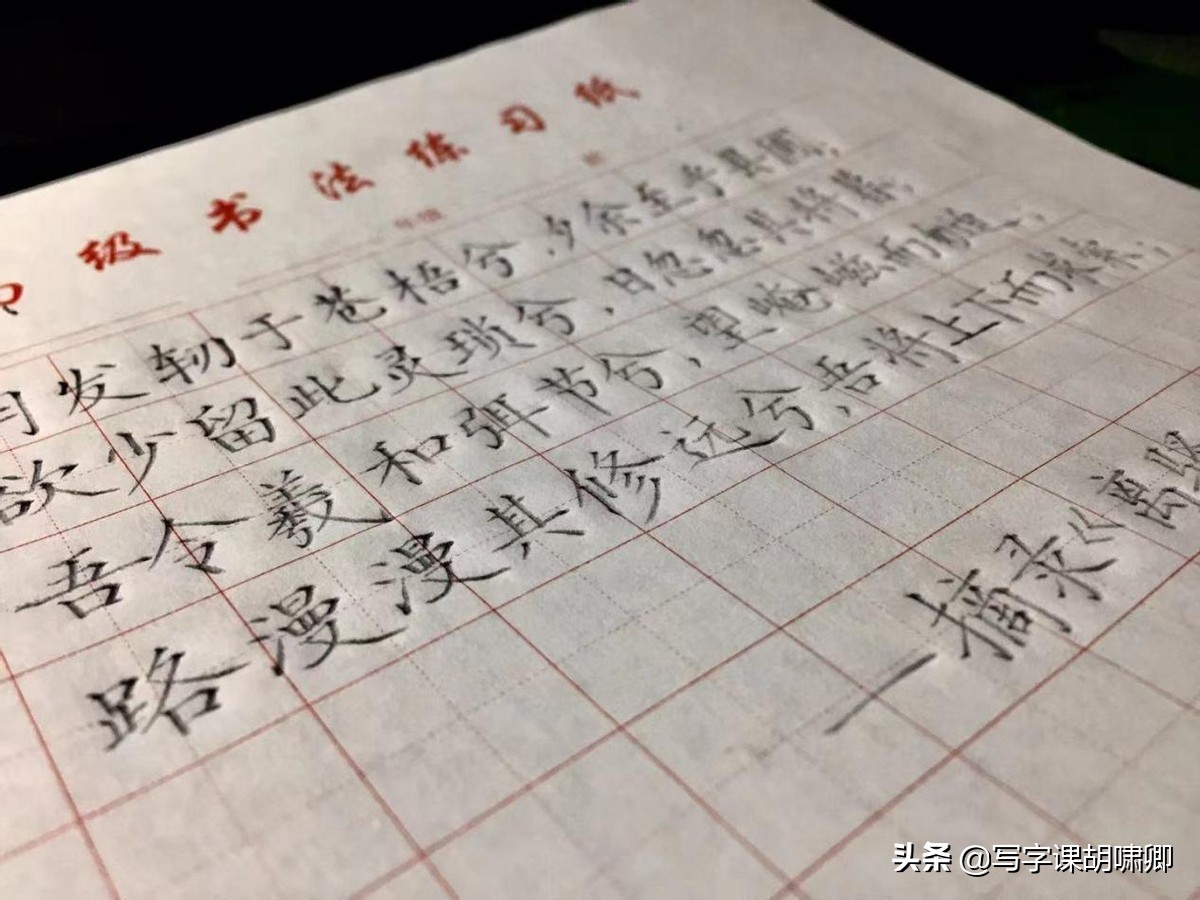 级书法练习纸
年级 班
朝发轫于苍梧兮,夕余至乎县圃;
欲少留此灵琐兮,日忽忽其将暮;
吾令羲和弭节兮,望崦嵫而勿迫;
路漫漫其修远兮,吾将上下而求索;
—摘录《离骚
头条 @写字课胡啸卿